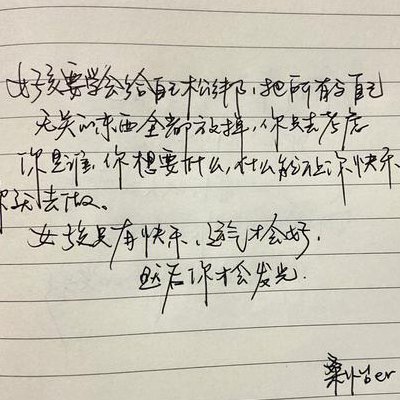 女孩要学会给自己松绑,把所有与自己
无关的东西全都放掉,你只去考虑
你是谁,你想要什么,什么能让你快乐
你就去做。
女孩只有快乐,运气才会好,
然后你才会发光.